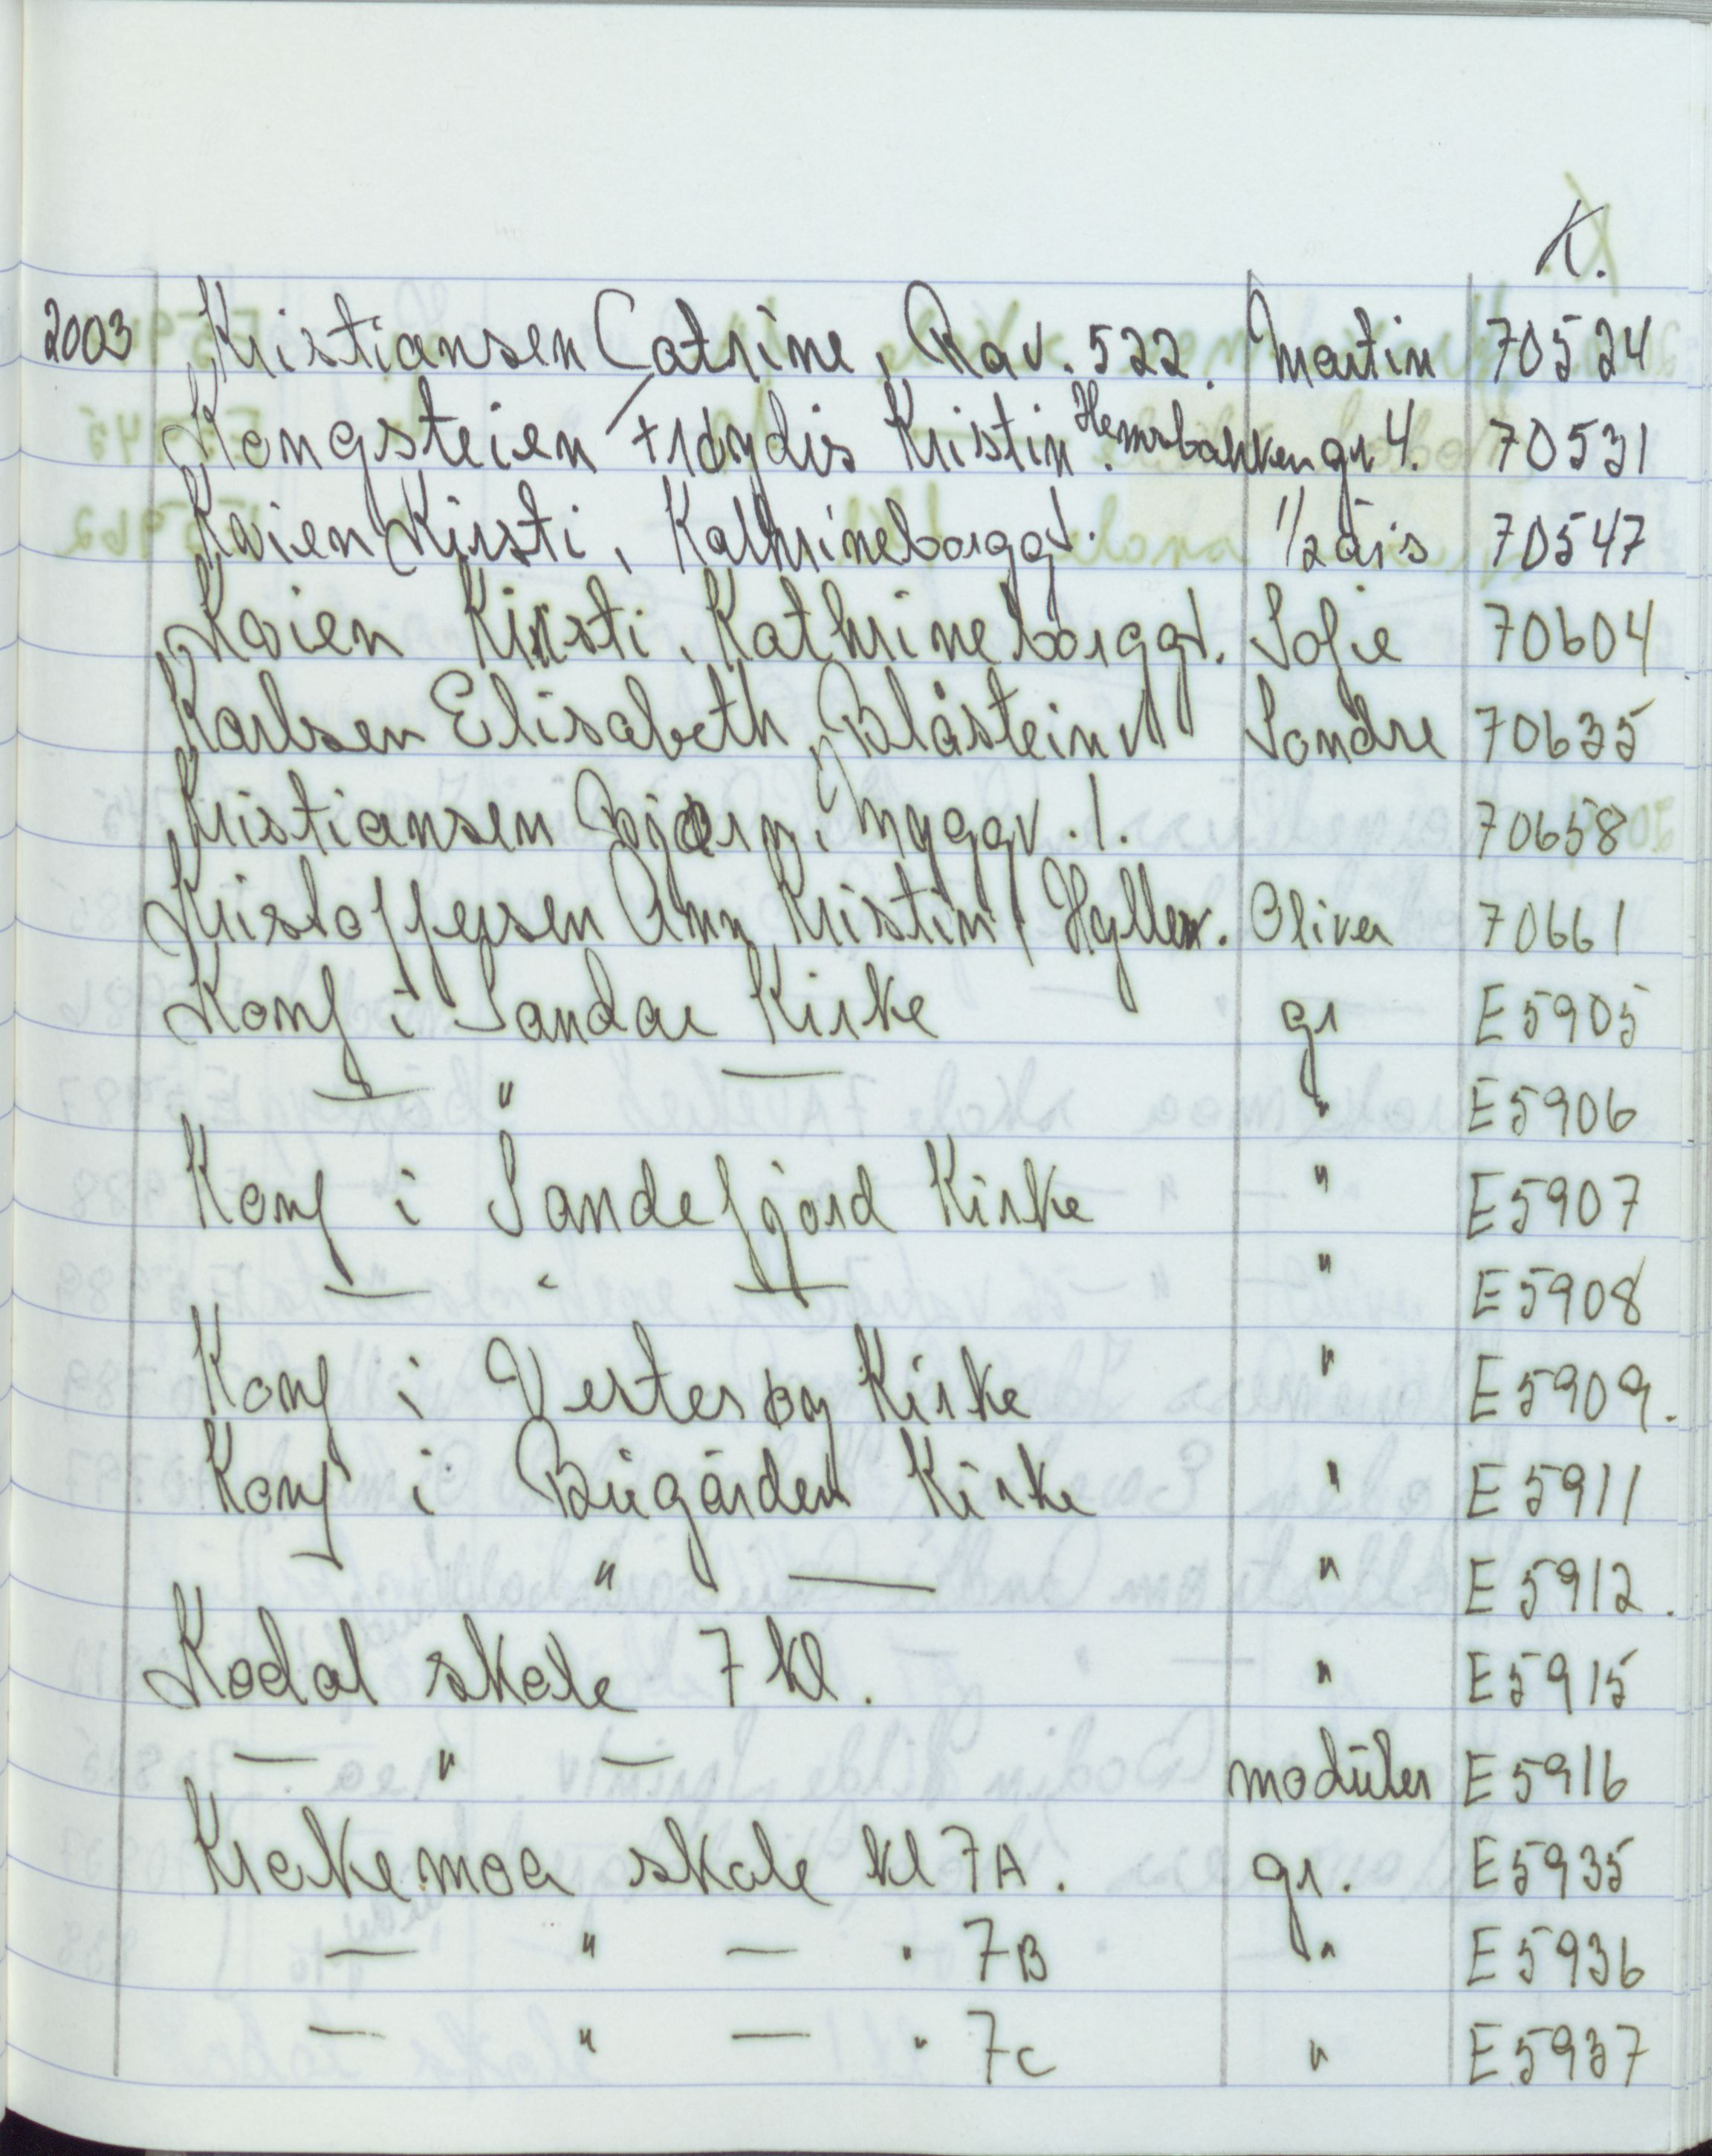 K.
2003 Kristiansen Catrine, Rav. 522. Martin 70524
Kongsteien Kristin. Hemsbakken gr 4. 70531
Kvien Kirsti, Kathrineborggt. 1/2 års 70547
Kvien Kirsti, Kathrineborggt. Sofie 70604
Karlsen Elisabeth, Blåsteinv Sondre 70635
Kristiansen Bjørn, Myggv. 1. 70658
Kristoffersen Ann Kristin, Hyllev. Oliver 70661
Konf i Sandar Kirke gr E5905
— " — " E5906
Konf i Sandefjord Kirke " E5907
— " — " E5908
Konf i Vesterøy Kirke " E5909.
Konf i Bugården Kirke " E5911
— " — " E5912.
Kodal skole 7 kl. " E5915
— " — modüler E5916
Krakemoa skole kl 7A. gr. E5935
— " — " 7B " E5936
— " — " 7c " E5937